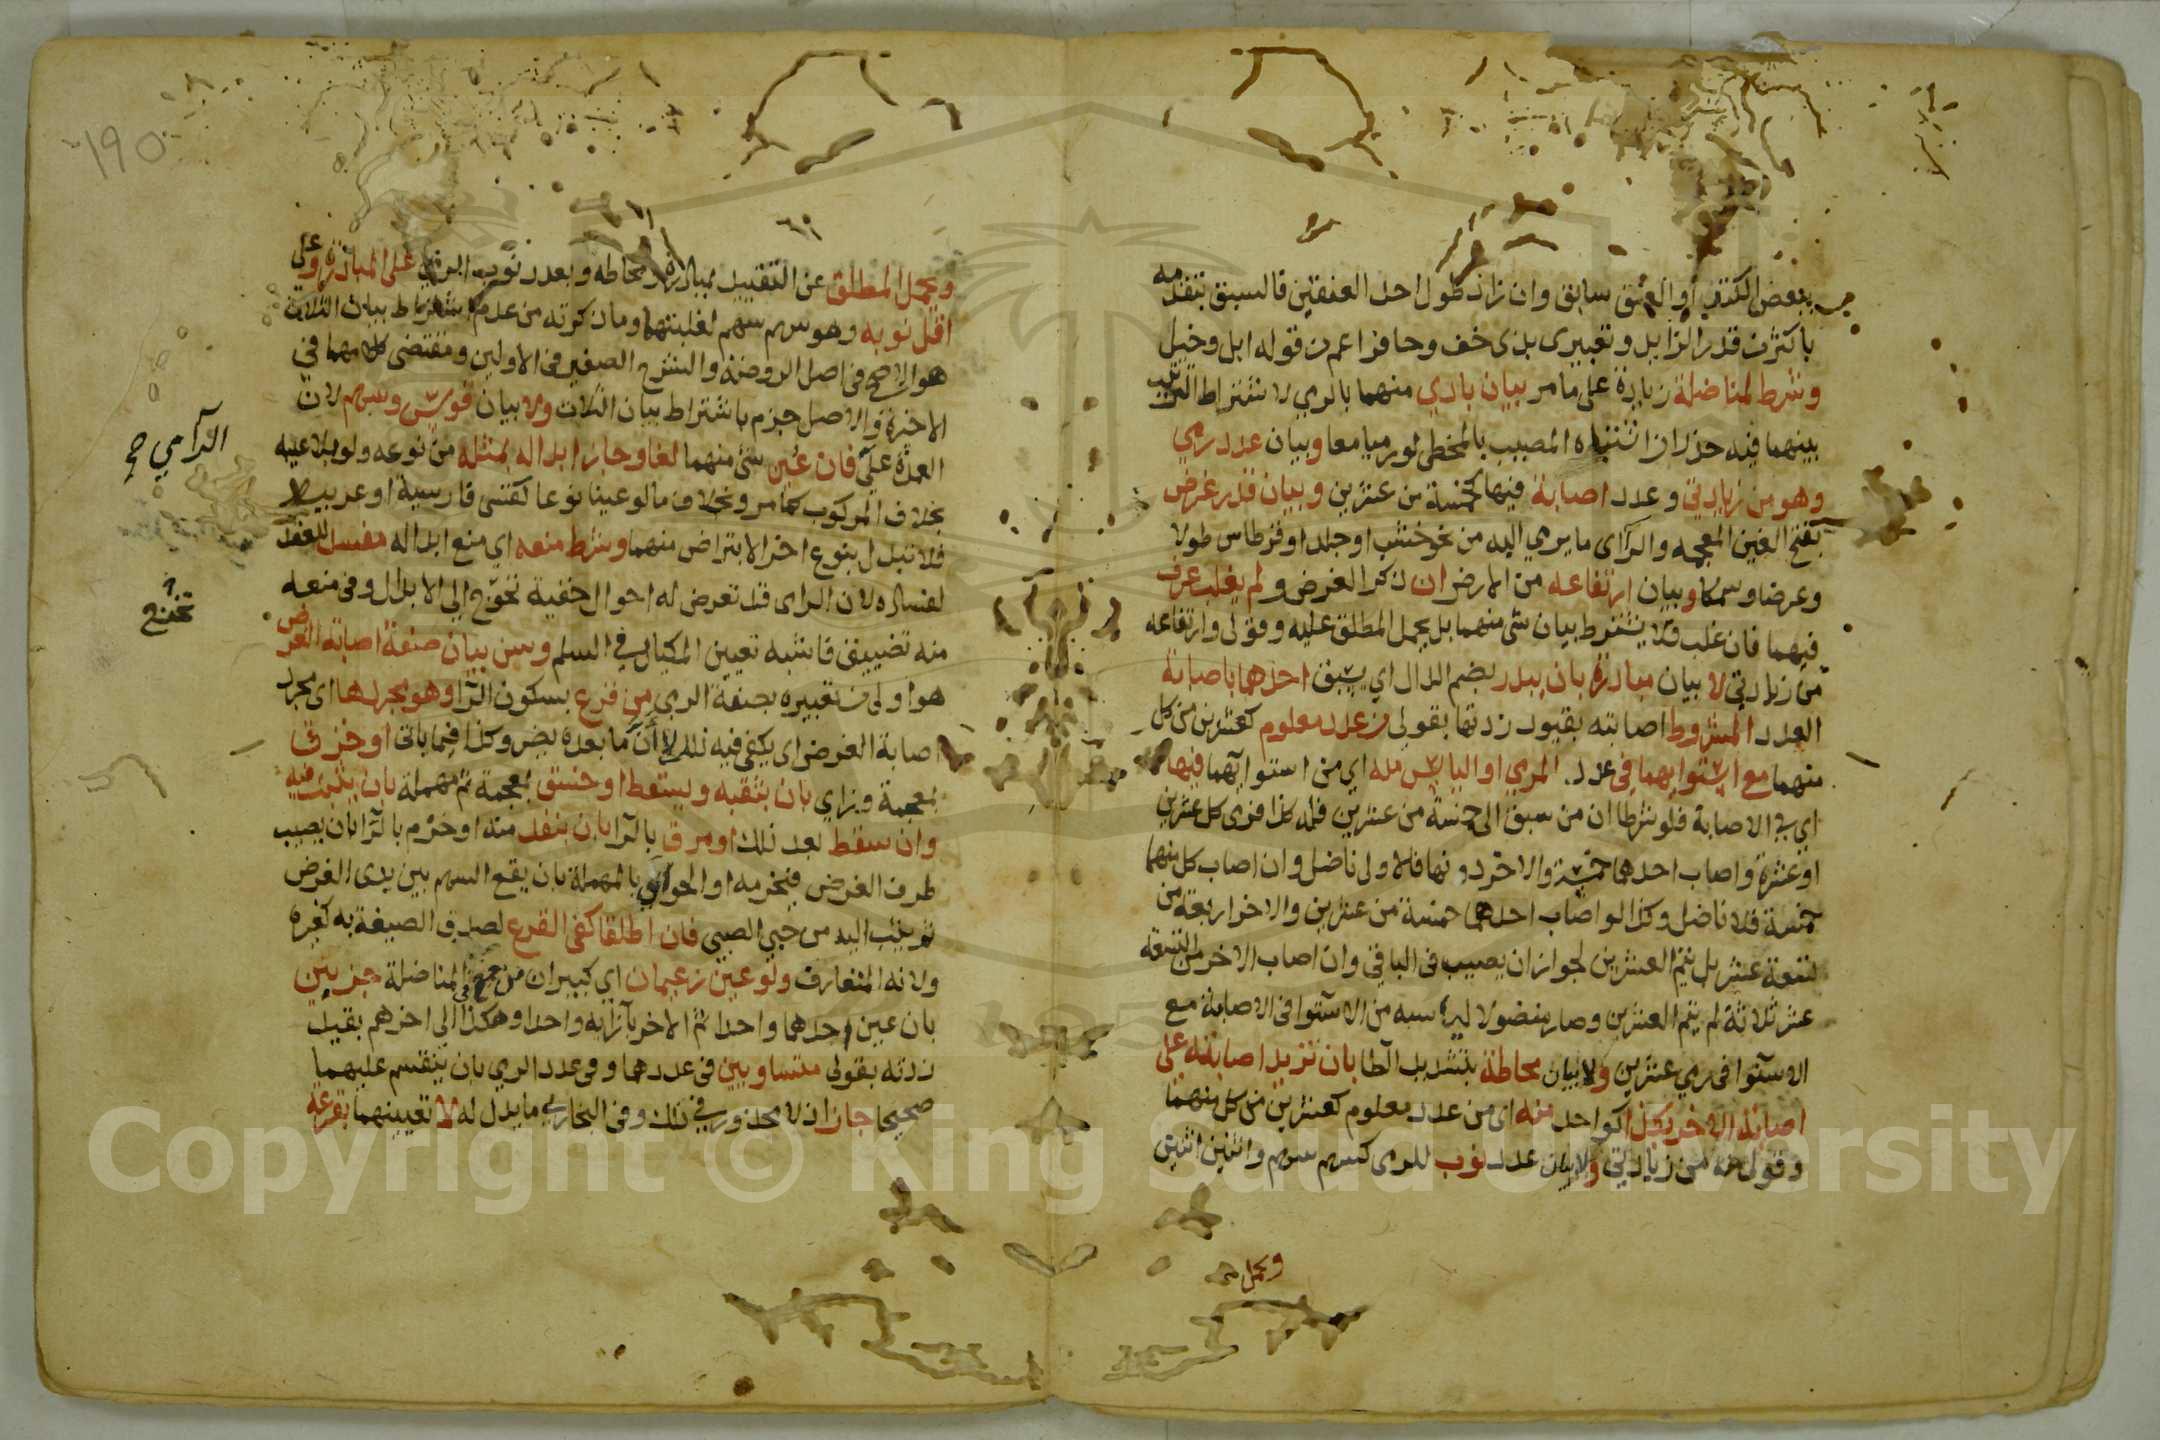 ببعض الكتد أو العنق سابق وان زاد طول احد العنقين فالسبق بتقدمه
باكثر من قدر الزايد وتعبيري بذي خف وحافر اعم من قوله ابل وخيل
وشرط لمناضلة زيادة على ما مر بيان بادي منهما بالرمي لاشتراط الترتيب
بينهما فيه حذرا من اشتباه المصيب بالمخطى لو رميا معا وبيان عدد رمي
وهو من زيادتي وعدد اصابة فيها كخمسة من عشرين وبيان قدر غرض
بفتح الغين المعجمه والرآ اى ما يرمي اليه من نحو خشب او جلد او قرطاس طولا
وعرضا وسمكا وبيان ارتفاعه من الارض ان ذكر الغرض ولم يغلب عرف
فيهما فان غلب فلا يشترط بيان شئ منهما بل يحمل المطلق عليه وقولى وارتفاعه
من زيادتي لا بيان مبادرة بان يبدر بضم الدال اي يسبق احدهما باصابة
العدد المشروط اصابته بقيود زدتها بقولى من عدد معلوم كعشرين من كل
منهما مع استوايهما في عدد المرمي او الياس منه اي من استوايهما فيها
اي في الاصابة فلو شرطا ان من سبق الى خمسة من عشرين فله كذا فرمى كل عشرين
او عشرة واصاب احدهما خمسة والاخر دونها فالاولى ناضل وان اصاب كل منهما
خمسة فلا ناضل وكذا لو اصاب احدهما خمسة من عشرين والاخر اربعة من
تسعة عشر بل يتم العشرين لجواز ان يصيب فى الباقي وان اصاب الاخر من التسعة
عشر ثلاثة لم يتم العشرين وصار مفضولا ليأسه من الاستوا فى الاصابة مع
الاستوا فى رمي عشرين ولا بيان محاطة بتشديد الطا بان تزيد اصابته على
اصابة الاخر بكذا كواحد منه اى من عدد معلوم كعشرين من كل منهما
وقولى منه من زيادتي ولا بيان عدد نوب للرمى كسهم سهم واثنين اثنين
ويحمل
١٩٥
ويحمل المطلق عن التقييد بمبادرة ومحاطه وبعدد نوب الرمي على المبادرة وعلى
اقل نوبه وهو سهم سهم لغلبتهما وما ذكرته من عدم اشتراط بيان الثلاثة
هو الاصح فى اصل الروضة والشرح الصغير فى الاولين ومقتضى كلامهما في
الاخيرة والاصل جزم باشتراط بيان الثلاث ولا بيان قوس وسهم لان
العمدة على الرامي فان عين شئ منهما لغا وجاز ابداله بمثله من نوعه ولو بلا عيب
بخلاف المركوب كما مر وبخلاف ما لو عينا نوعا كقسى فارسية او عربية
فلا تبدل بنوع اخر الا بتراض منهما وشرط منعه اي منع ابداله مفسد للعقد
لفساده لان الرامى قد تعرض له احوال خفية تحوج الى الابدال وفى منعه
منه تضييق فاشبه تعيين المكيال في السلم وسن بيان صفة اصابة الغرض
هو اولى من تعبيره بصفة الرمي من قرع بسكون الرآ وهو مجردها اى مجرد
اصابة الغرض اى يكفى فيه ذلك لا أن ما بعده يضر وكذا فيما ياتى او خزق
بمعجمة وزاي بان يثقبه ويسقط او خسق بمعجمة ثم مهملة بان يثبت فيه
وان سقط بعد ذلك او مرق بالرآ بان ينفذ منه او خرم بالرآ بان يصيب
طرف الغرض فيخرمه او الحوابي بالمهملة بان يقع السهم بين يدى الغرض
ثم يثب اليه من حبي الصبي فان اطلقا كفى القرع لصدق الصيغة به كغيره
ولانه المتعارف ولو عين زعيمان اي كبيران من جمع في المناضلة حزبين
بان عين احدهما واحدا ثم الاخر بازايه واحدا وهكذا الى اخرهم بقيد
زدته بقولى متساويين فى عددهما وفى عدد الرمي بان ينقسم عليهما
صحيحا جاز اذ لا محذور في ذلك وفى البخاري ما يدل له لا تعيينهما بقرعة
الرامي صح
تحوج
Copyright © King Saud University